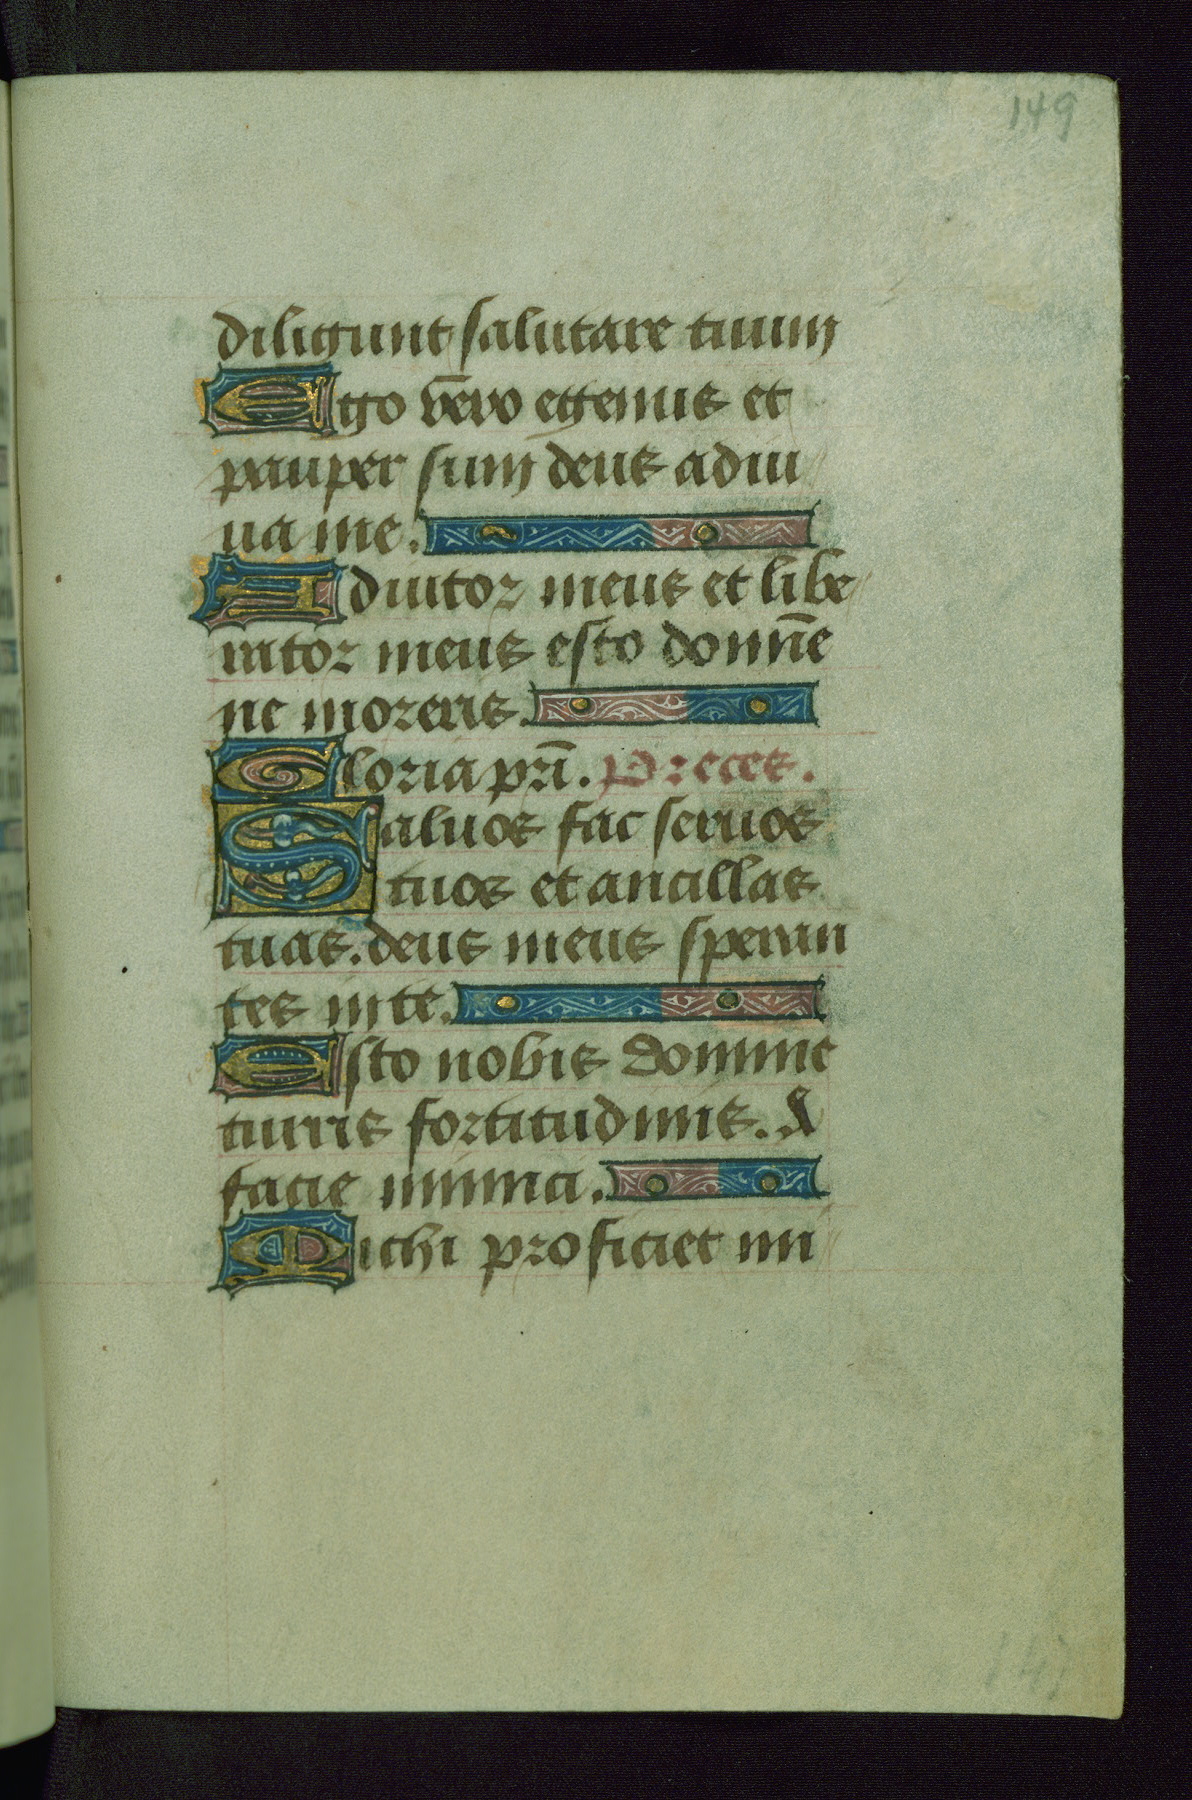 149
diligunt salutare tuum
Ego vēro egenus et
pauper sum deus adiu
ua me.
Adiutor meus et libe
rator meus esto domīne
ne moreris.
Gloria pr̄i. Preces.
Saluos fac seruos
tuos et ancillas
tuas. deus meus speran
tes in te.
Esto nobis domine
turris fortitudinis. A
facie inimici.
Nichi proficiet ini